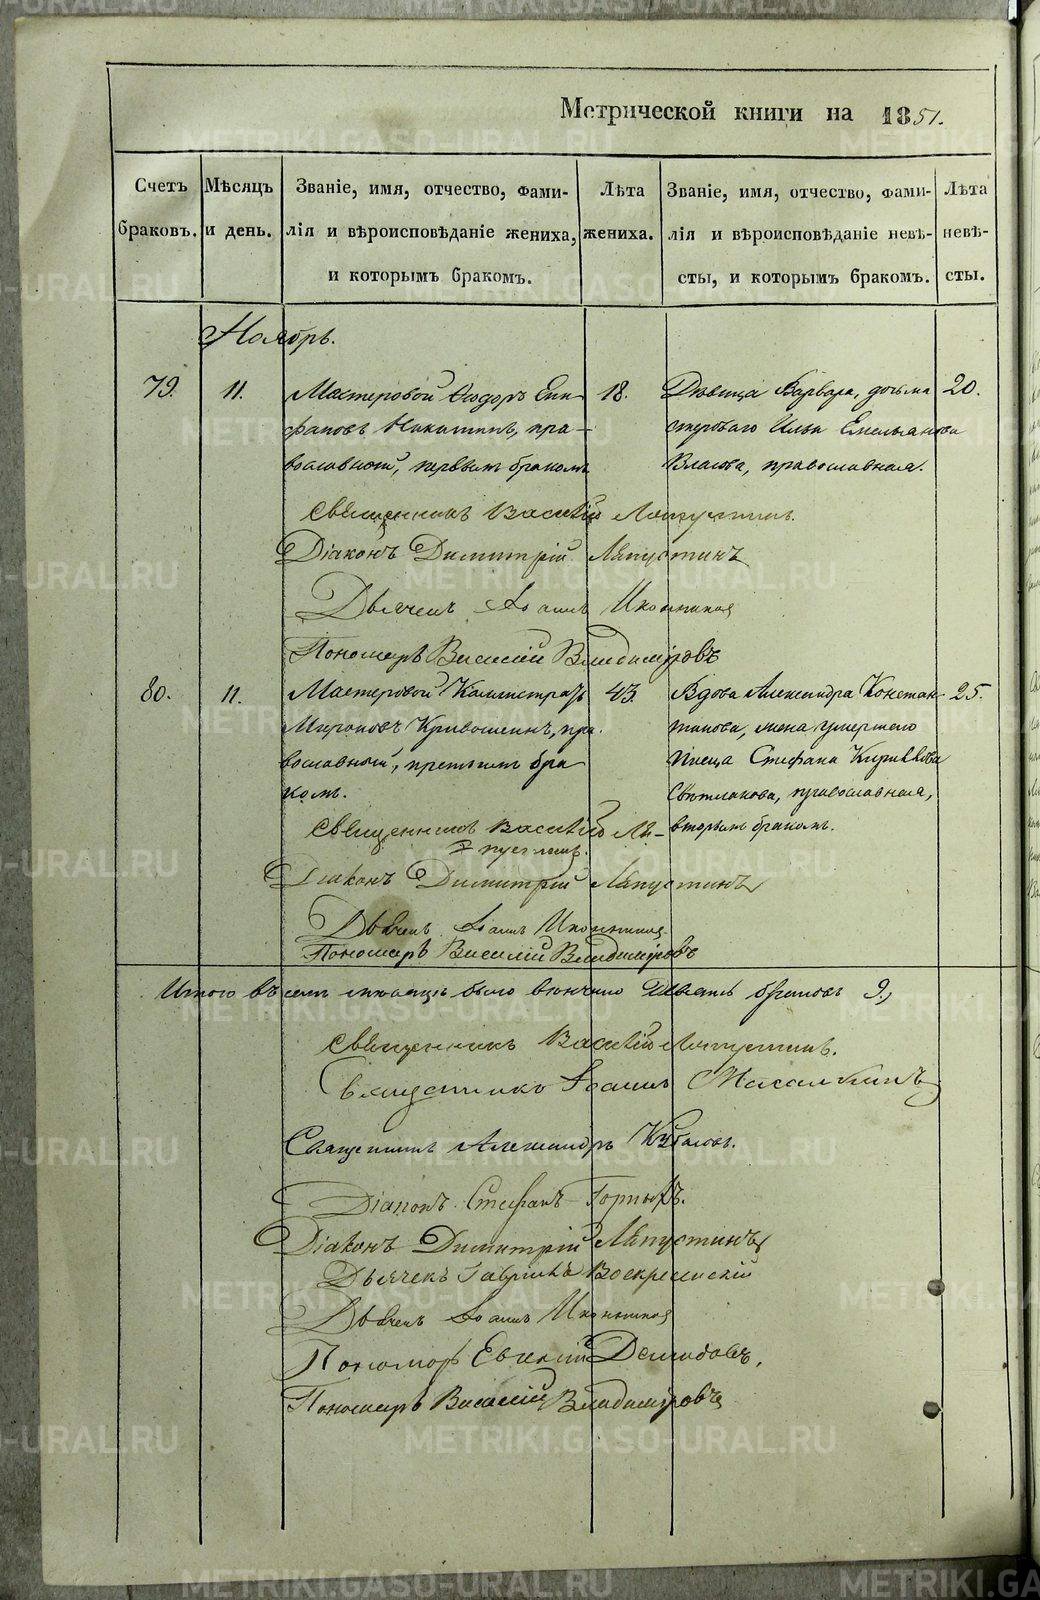 Метрической книги на 1851.
Счетъ браковъ.
Мѣсяцъ и день.
Званіе, имя, отчество, фамилія и вѣроисповѣданіе жениха, и которымъ бракомъ.
Лѣта жениха.
Званіе, имя, отчество, фамилія и вѣроисповѣданіе невѣсты, и которымъ бракомъ.
Лѣта невѣсты.
Ноябрь.
79.
11.
Мастеровой Ѳеодоръ Епи-
фановъ Никитинъ, пра-
вославной, первымъ бракомъ
18.
Дѣвица Варвара, дочь ма
стероваго Ильи Емельянова
Власова, православная.
20.
Священникъ Василій Ляпустинъ.
Діаконъ Димитрій Ляпустинъ
Дьячекъ Іоаннъ
Пономарь Василій Владиміровъ
80.
11.
Мастеровой Калистратъ
Мироновъ Кривошеинъ, пра-
вославный, третьимъ бра
комъ.
43.
Вдова Александра Констан-
тинова, жена умершаго
писца Стефана Кириллова
Свѣтлакова, православная,
вторымъ бракомъ.
25.
Священникъ Василій Ля-
пустинъ.
Діаконъ Димитрій Ляпустинъ
Дьячекъ Іоаннъ
Пономарь Василій Владиміровъ
Итого въ семъ мѣсяцѣ было вѣнчано девять браковъ 9,
Священникъ Василій Ляпустинъ.
Священникъ Іоаннъ
Священникъ Александръ
Діаконъ Стефанъ Горныхъ.
Діаконъ Димитрій Ляпустинъ
Дьячекъ Гавріилъ Воскресенскій
Дьячекъ Іоаннъ
Пономарь Евгеній Демидовъ.
Пономарь Василій Владиміровъ
METRIKI.GASO-URAL.RU